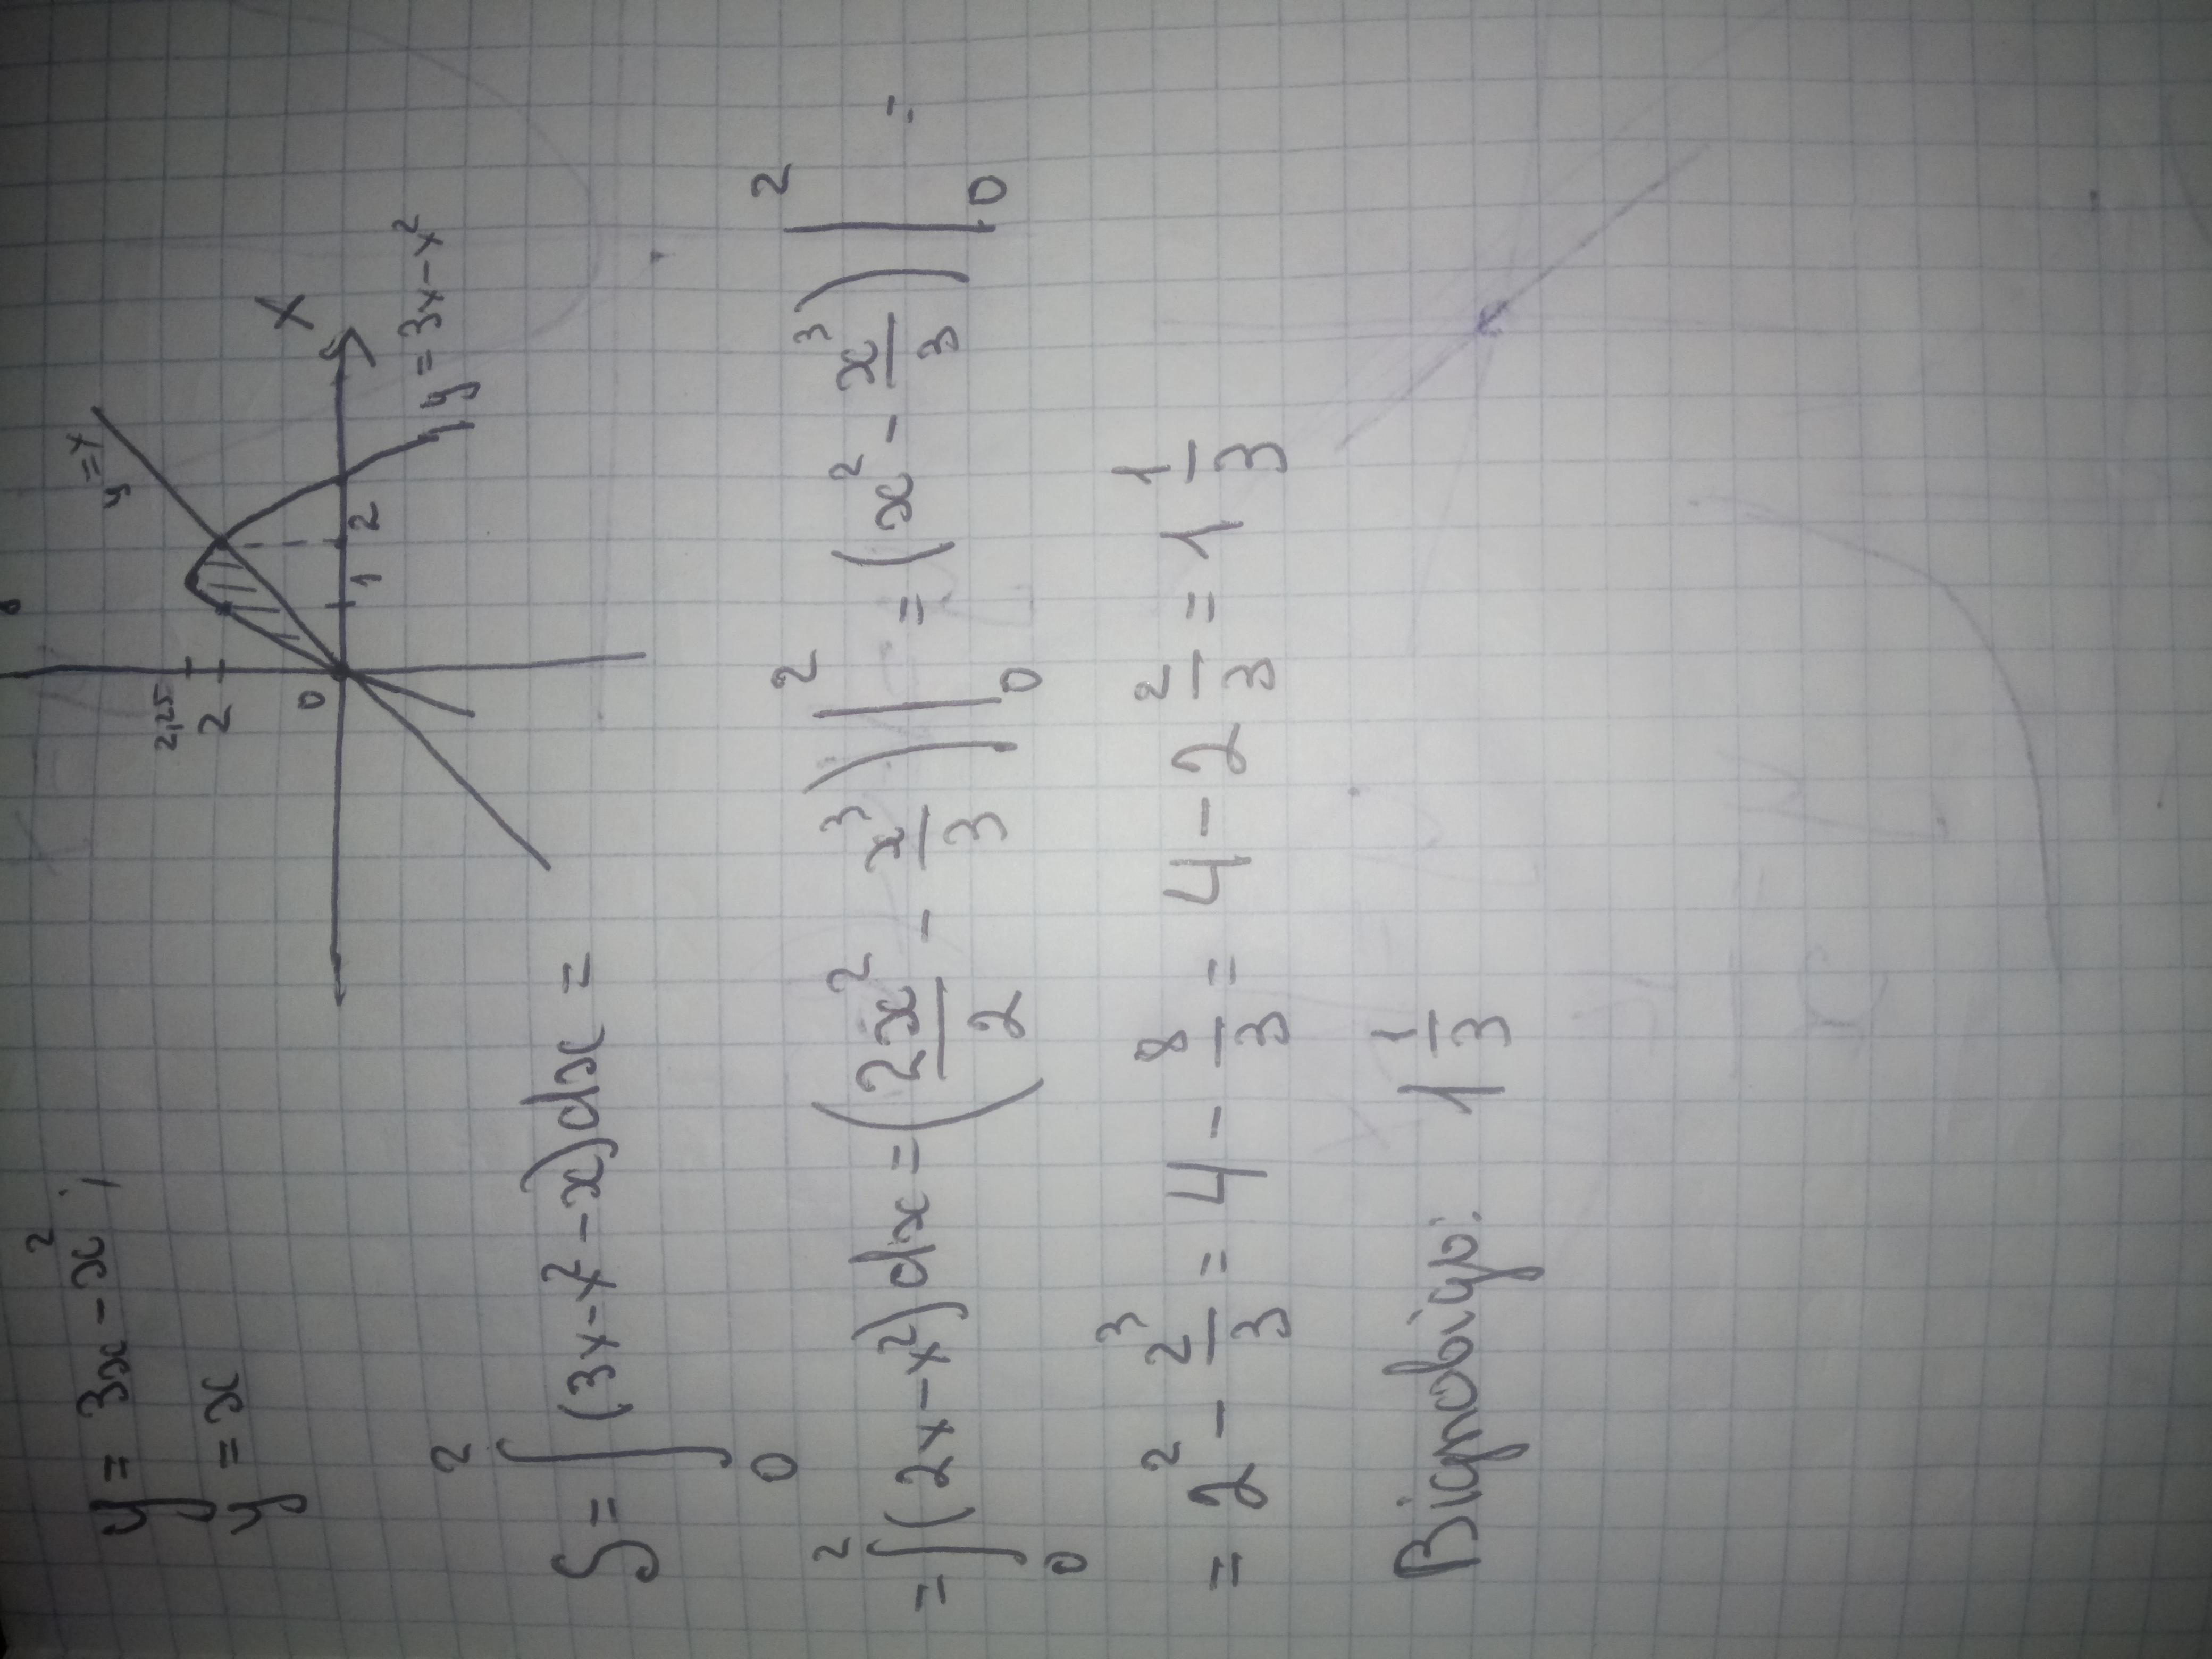 y = 3x - x²;
y = x
y = x
2,25
2
0
1
2
X
y = 3x - x²
S = ∫₀² (3x - x² - x)dx =
= ∫₀² (2x - x²)dx = (2x²/2 - x³/3)|₀² = (x² - x³/3)|₀² =
= 2² - 2³/3 = 4 - 8/3 = 4 - 2 2/3 = 1 1/3
Відповідь: 1 1/3